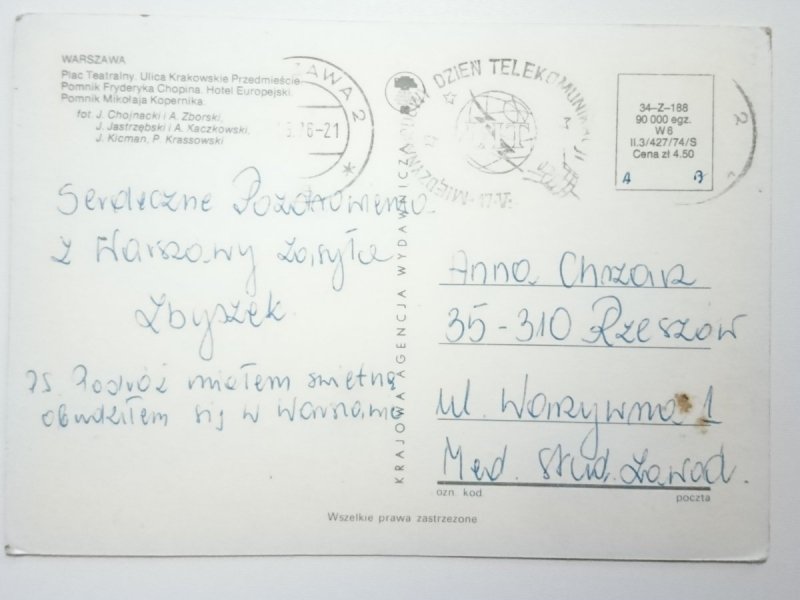 WARSZAWA
Plac Teatralny. Ulica Krakowskie Przedmieście.
Pomnik Fryderyka Chopina. Hotel Europejski.
Pomnik Mikołaja Kopernika.
fot J. Chojnacki i A. Zborski,
J. Jastrzębski i A. Kaczkowski,
J. Kicman, P. Krassowski
Serdeczne Pozdrowienia
z Warszawy zasyła
Zbyszek
PS Podróż miałem świetną
obudziłem się w Warszawie
KRAJOWA AGENCJA WYDAWNICZA
DZIEŃ TELEKOMUNIKACJI
17.V.
34-Z-188
90 000 egz.
W 6
II.3/427/74/S
Cena zł 4.50
A B
Anna Chrzan
35-310 Rzeszów
ul. Warzywna 1
Med. Stud. Zawod.
ozn. kod. poczta
Wszelkie prawa zastrzeżone